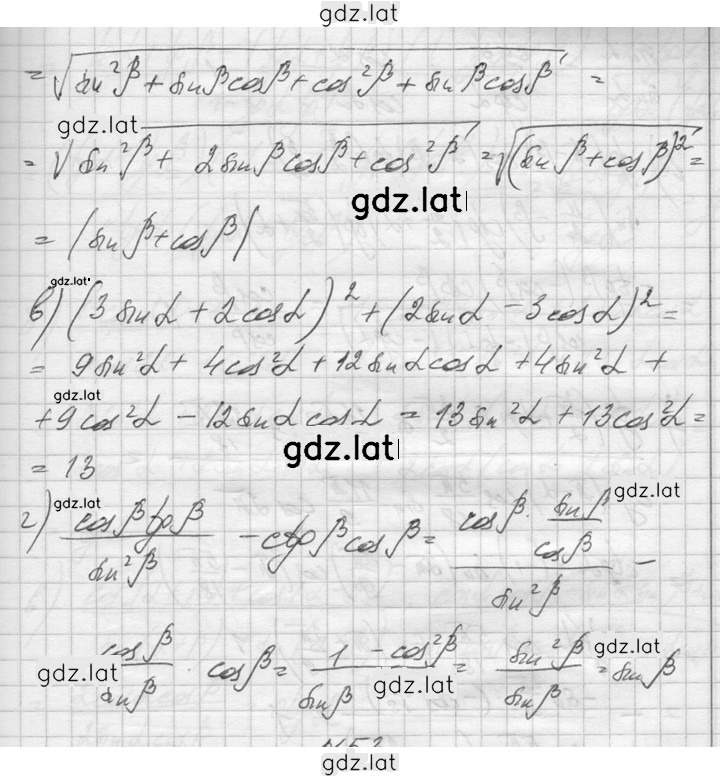 gdz.lat
= √(sin²β + sinβcosβ + cos²β + sinβcosβ) =
gdz.lat
= √(sin²β + 2sinβcosβ + cos²β) = √((sinβ + cosβ)²) =
gdz.lat
= |sinβ + cosβ|
gdz.lat
в) (3sinα + 2cosα)² + (2sinα − 3cosα)² =
= 9sin²α + 4cos²α + 12sinαcosα + 4sin²α +
gdz.lat
+ 9cos²α − 12sinαcosα = 13sin²α + 13cos²α =
gdz.lat
= 13
gdz.lat gdz.lat
г) (cosβtgβ)/(sin²β) − ctgβcosβ = (cosβ · sinβ/cosβ)/(sin²β) −
gdz.lat
cosβ/sinβ cosβ = (1 − cos²β)/sinβ = sin²β/sinβ = sinβ
gdz.lat gdz.lat
gdz.lat